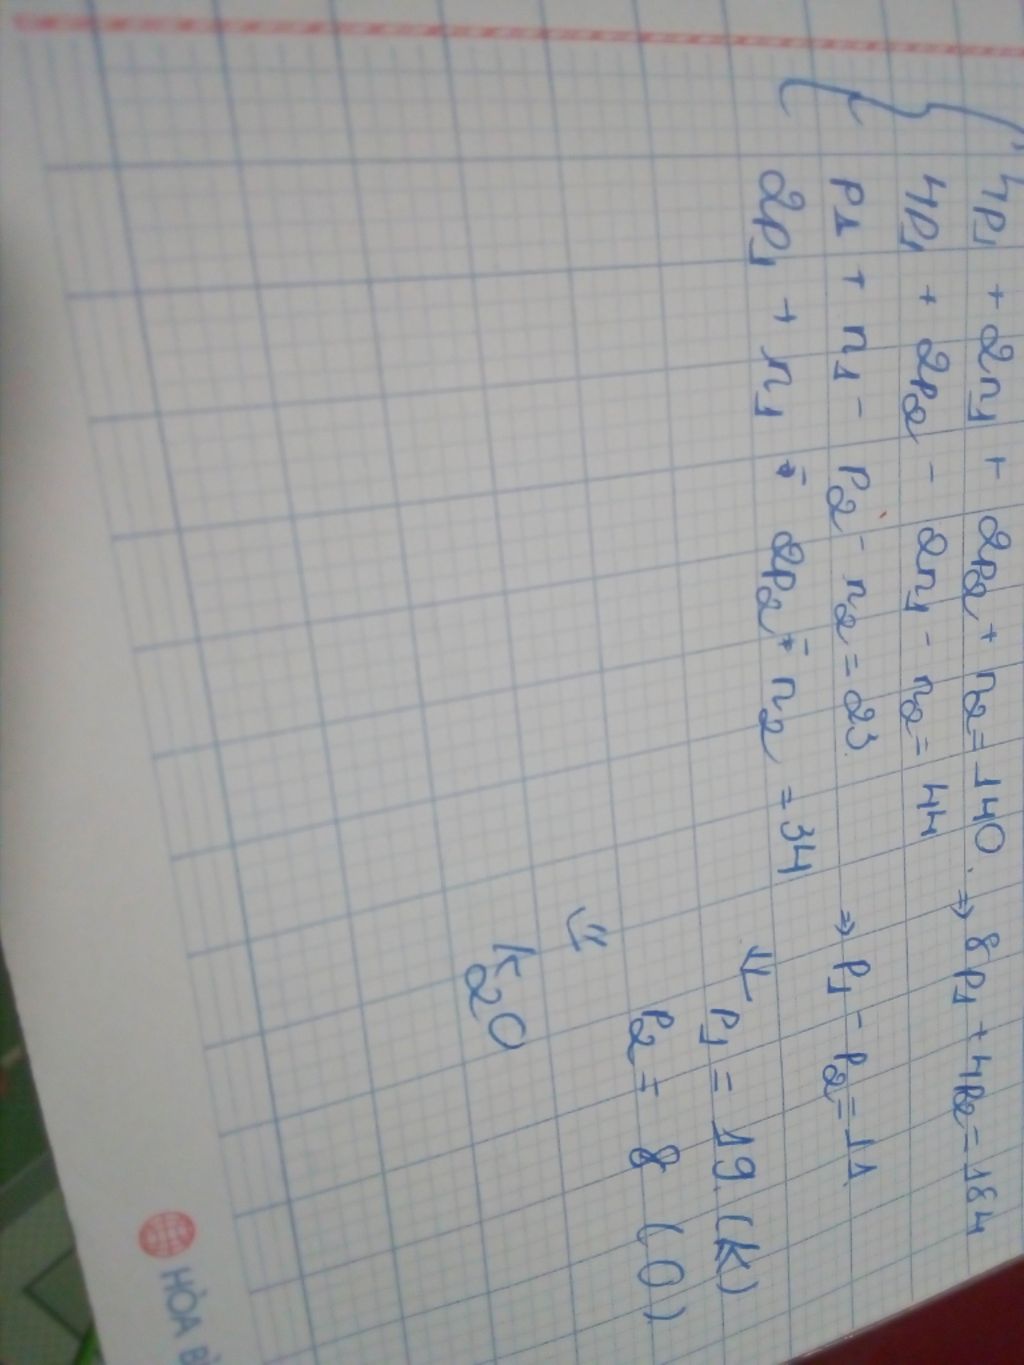 4p1 + 2n1 + 2p2 + n2 = 140 ⇒ 8p1 + 4p2 = 184
4p1 + 2p2 - 2n1 - n2 = 44
p1 + n1 - p2 - n2 = 23 ⇒ p1 - p2 = 11
2p1 + n1 - 2p2 - n2 = 34
⇓ p1 = 19 (K)
p2 = 8 (O)
⇓
K2O
HÒA B